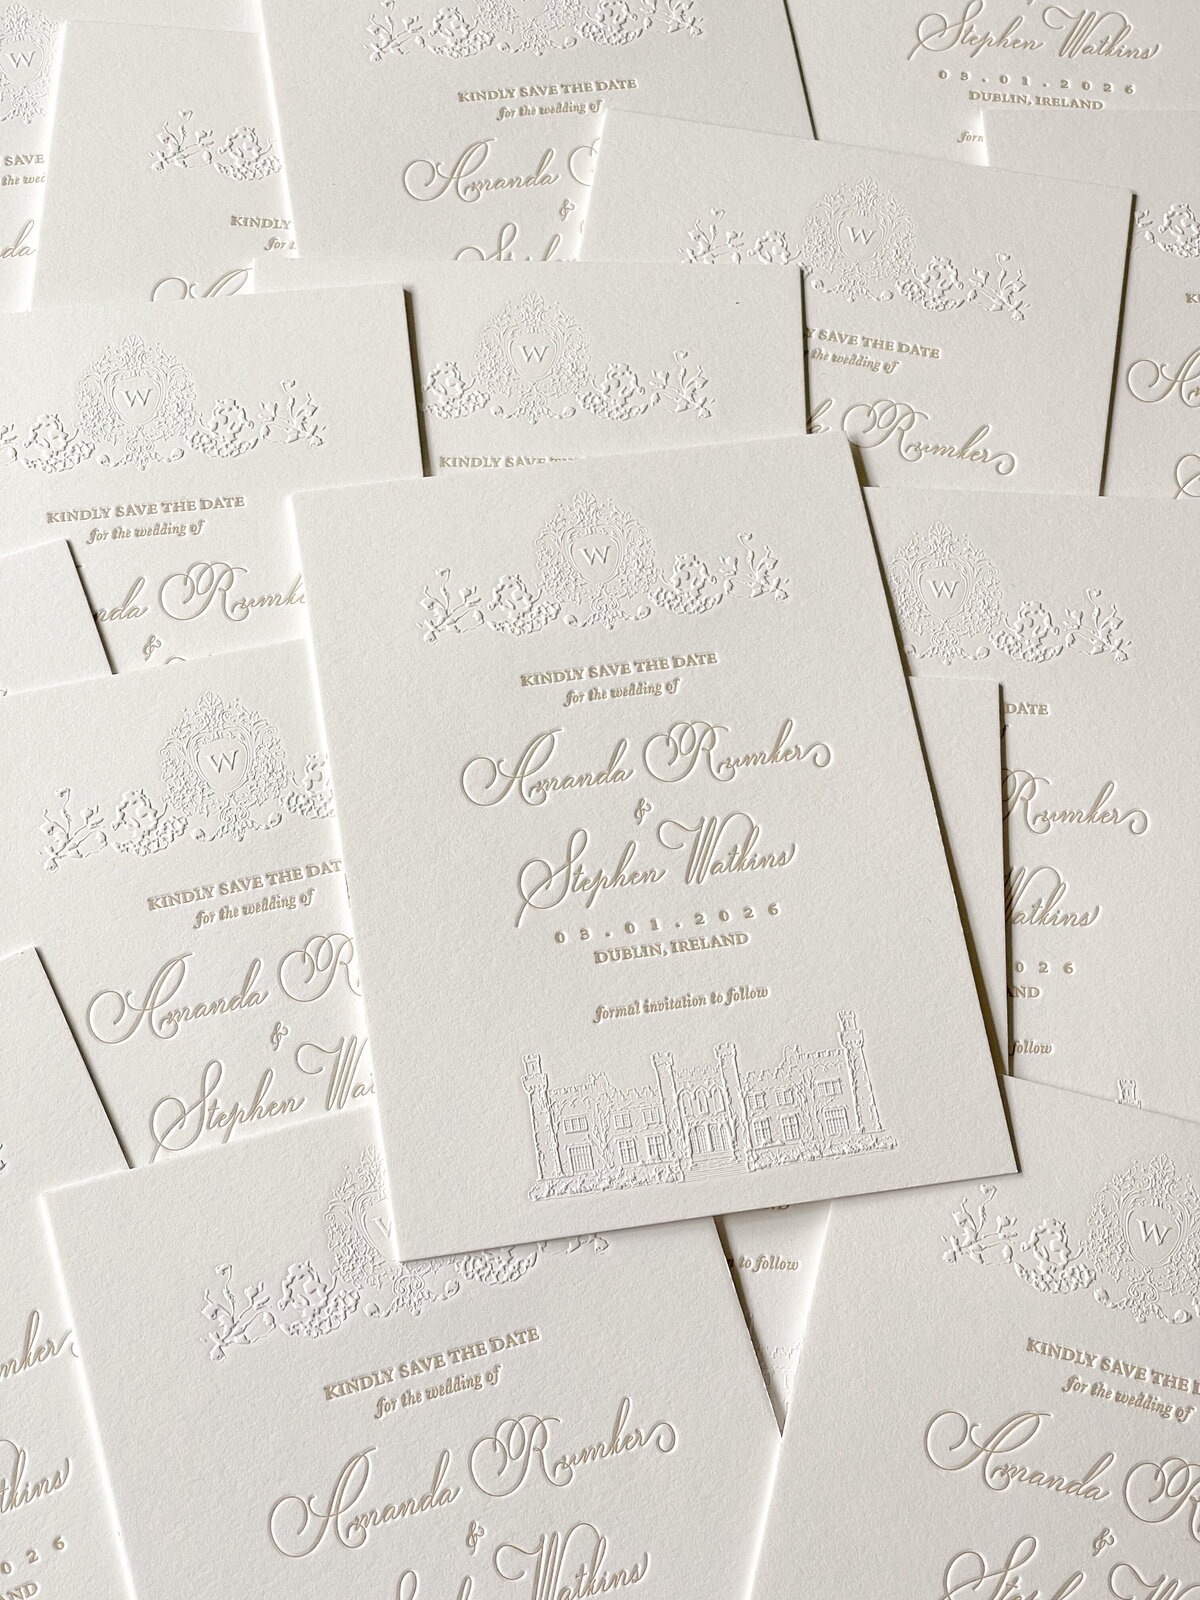 W
SAVE
Stephen Watkins
08.01.2026
DUBLIN, IRELAND
KINDLY SAVE THE DATE
for the wedding of
Amanda
&
KINDLY
for
W
SAVE THE DATE
the wedding of
Rumker
W
KINDLY SAVE THE DATE
for the wedding of
Rumker
&
W
KINDLY SAVE THE
W
KINDLY SAVE THE DATE
for the wedding of
Amanda Rumker
&
Stephen Watkins
08.01.2026
DUBLIN, IRELAND
formal invitation to follow
W
DATE
Rumker
Watkins
026
follow
W
KINDLY SAVE THE DAT
for the wedding of
Amanda R
&
Stephen Wat
to follow
W
KINDLY SAVE THE DATE
for the wedding of
Amanda Rumker
&
Watkins
W
KINDLY SAVE THE
for the wedding of
Amanda R
&
026